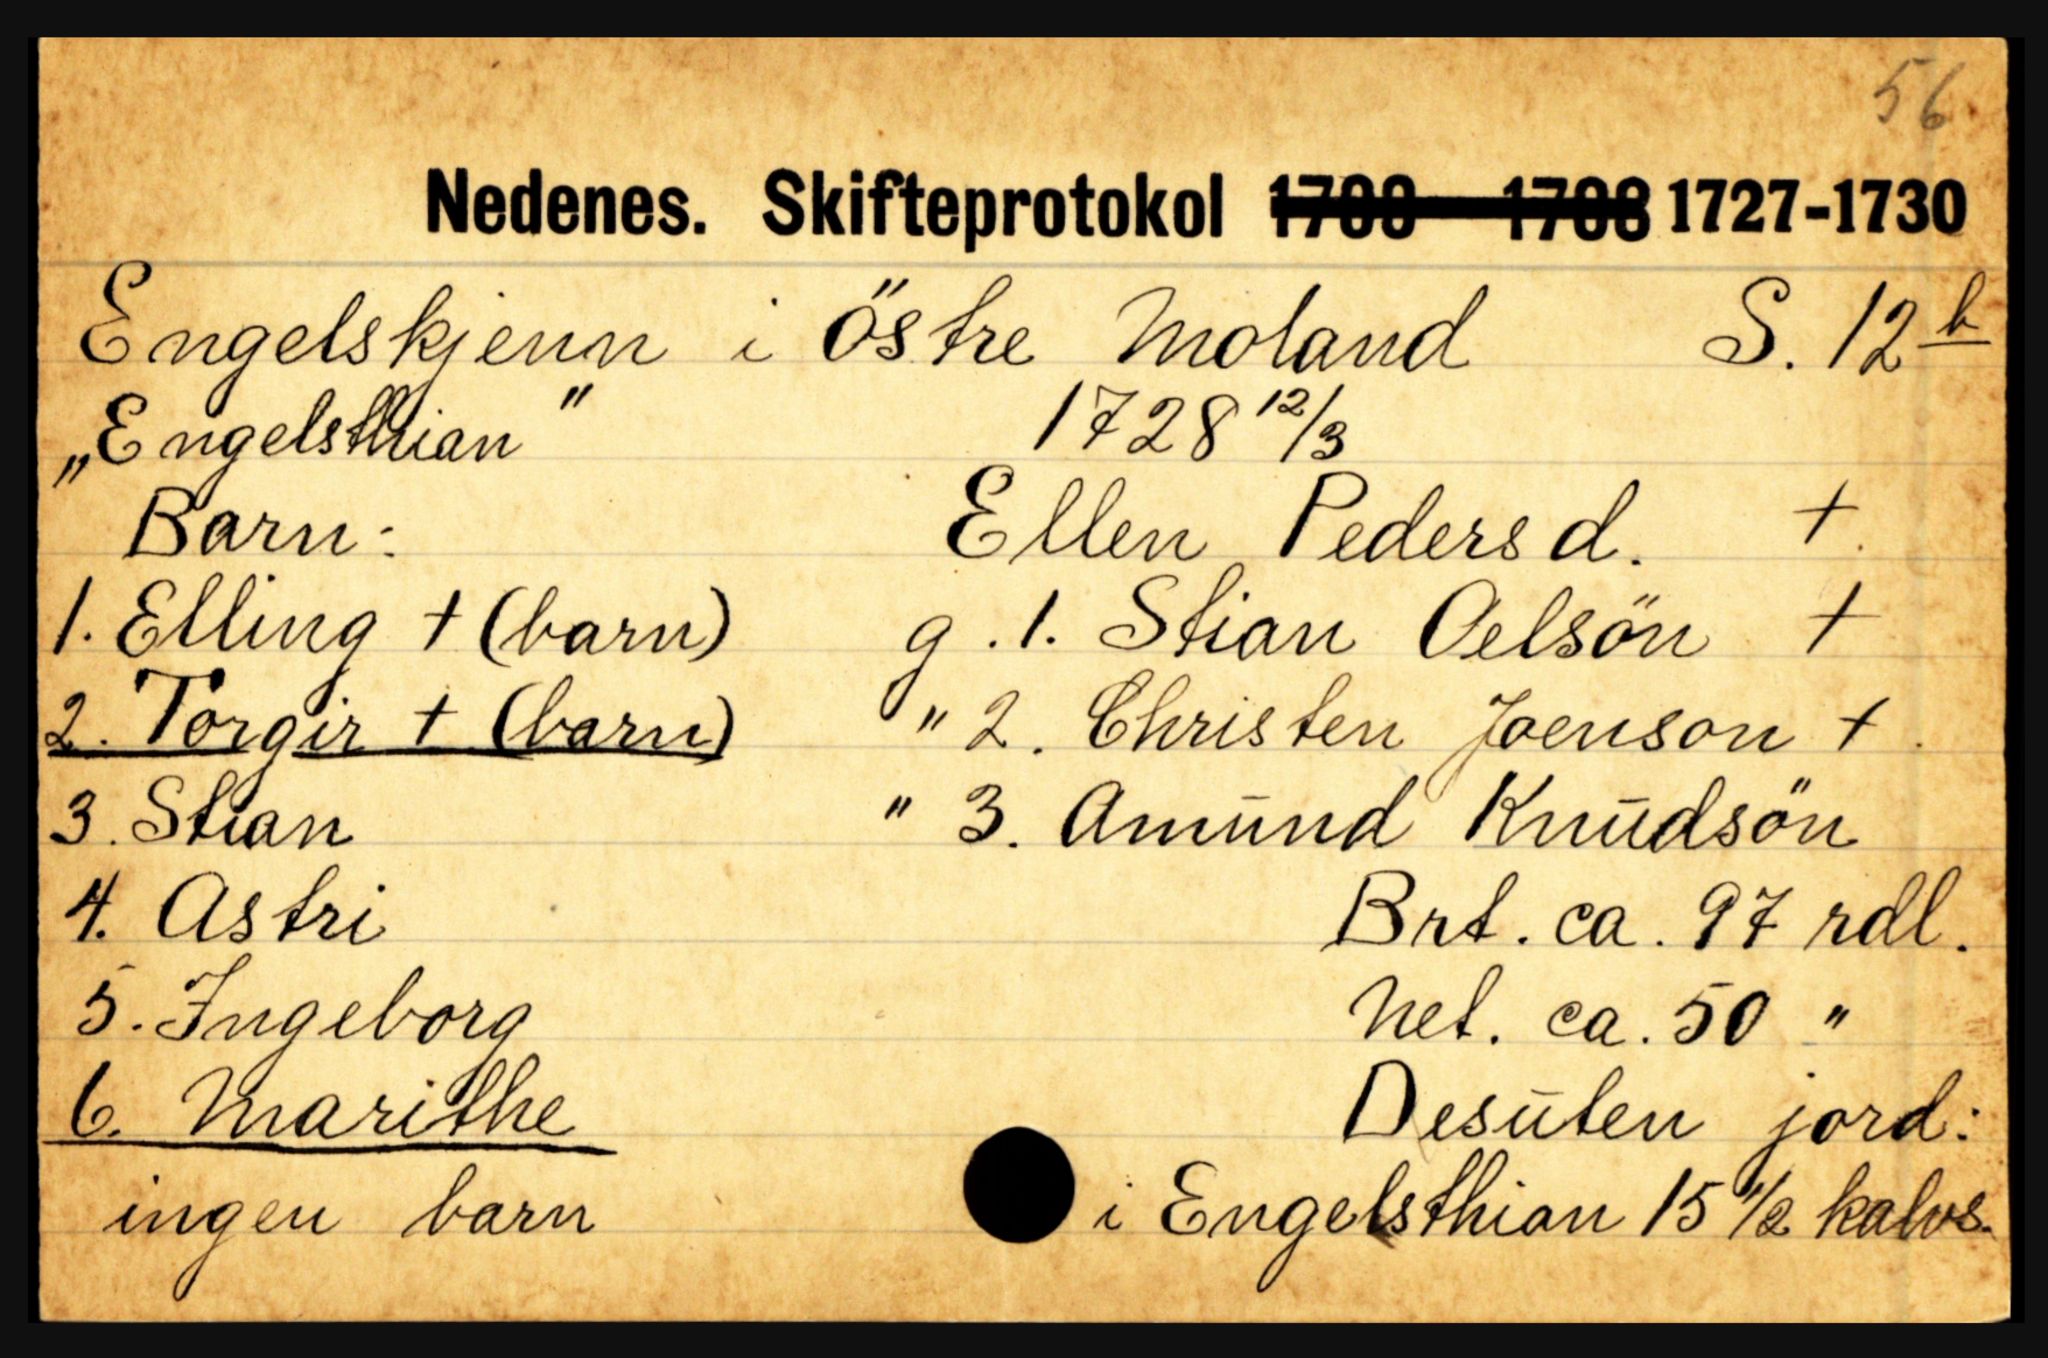 56
Nedenes. Skifteprotokol 1788 - 1788 1727-1730
Engelskjenn i Östre Moland S. 12 b
„Engelsthian" 1728 12/3
Barn: Ellen Pedersd. +
1. Elling + (barn) g. 1. Stian Oelsön +
2. Torgir + (barn) " 2. Christen Joenson +.
3. Stian " 3. Amund Knudsön
4. Astri Brt. ca. 97 rdl.
5. Ingeborg Net. ca. 50 "
6. Marithe Desuten jord:
ingen barn i Engelsthian 15 1/2 kalvs.